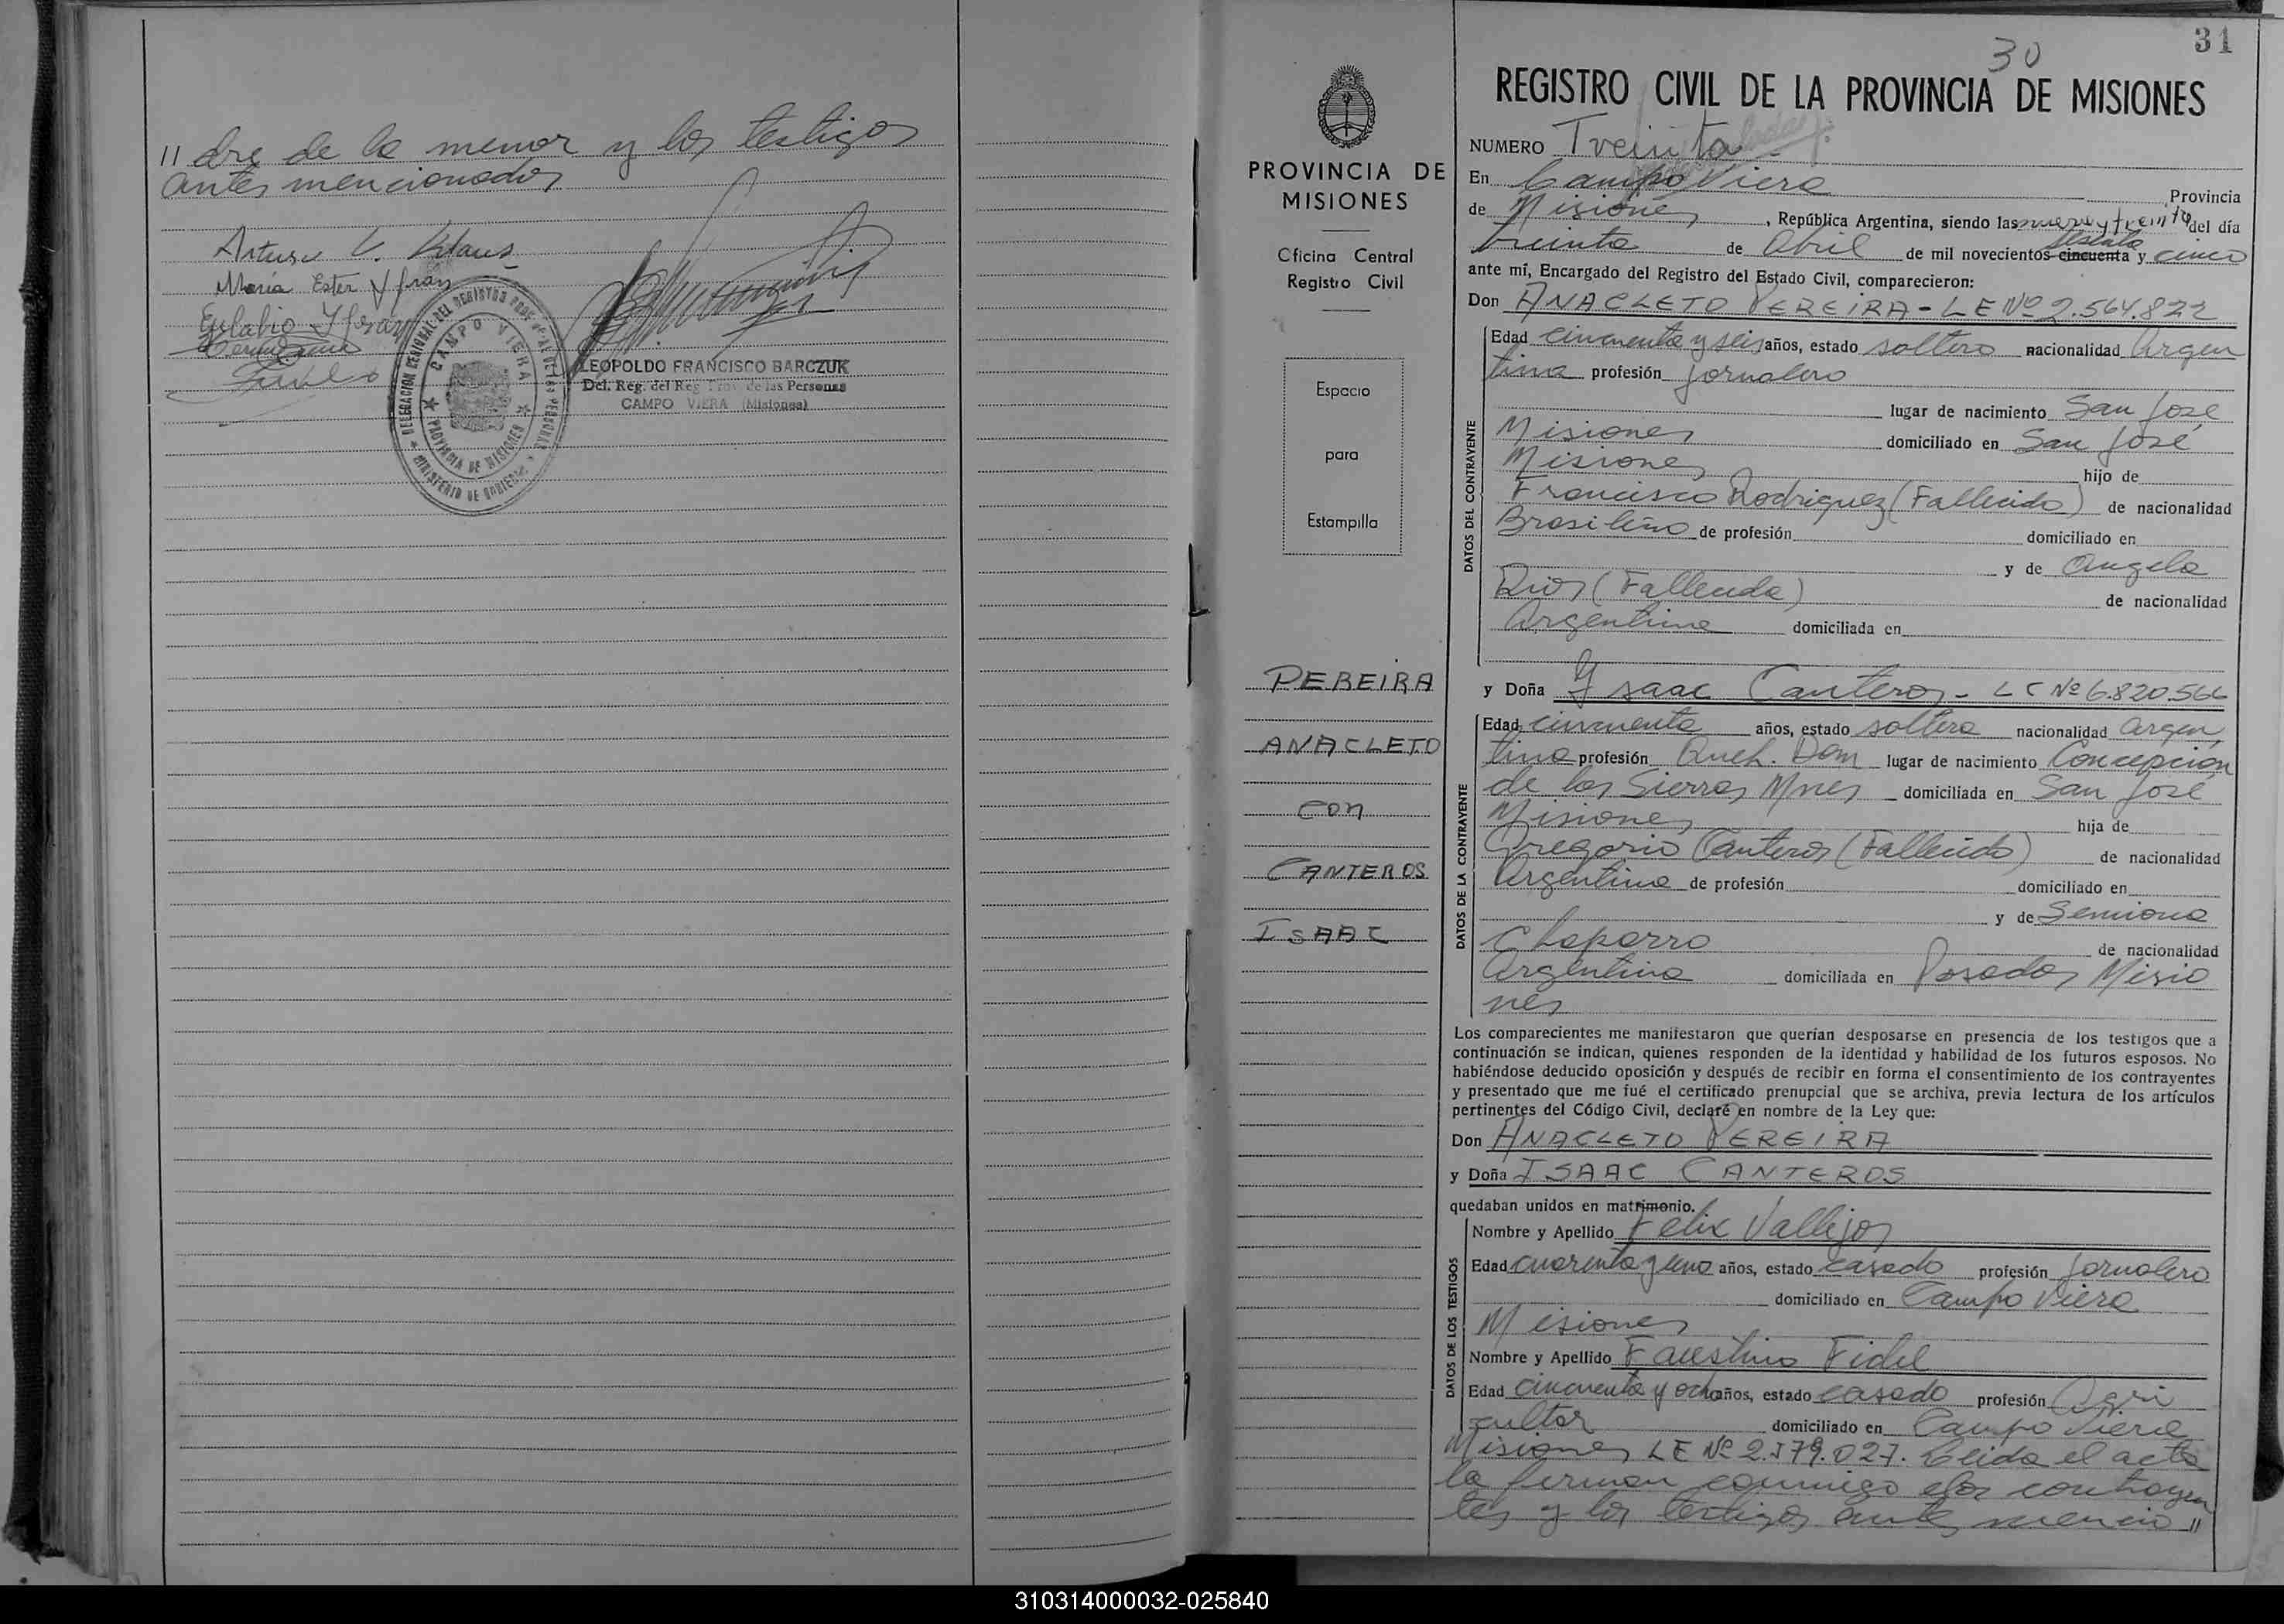 // dre de la menor y los testigos
antes mencionados
Arturo V. Klaus
Maria Ester Yfran
Eulalio Yfran
DELEGACION REGIONAL DEL REGISTRO PROVINCIAL DE LAS PERSONAS
CAMPO VIERA
PROVINCIA DE MISIONES
MINISTERIO DE GOBIERNO
LEOPOLDO FRANCISCO BARCZUK
Del. Reg. del Reg. Prov. de las Personas
CAMPO VIERA (Misiones)
PROVINCIA DE
MISIONES
Oficina Central
Registro Civil
Espacio
para
Estampilla
PEREIRA
ANACLETO
CON
CANTEROS
ISAAC
31
30
REGISTRO CIVIL DE LA PROVINCIA DE MISIONES
NUMERO Treinta
En Campo Viera Provincia
de Misiones, República Argentina, siendo las nueve y treinta del día
treinta de Abril de mil novecientos cincuenta sesenta y cinco
ante mí, Encargado del Registro del Estado Civil, comparecieron:
Don ANACLETO PEREIRA - LE Nº 2.564.822
DATOS DEL CONTRAYENTE
Edad cincuenta y seis años, estado soltero nacionalidad Argen
tina profesión Jornalero
lugar de nacimiento San José
Misiones domiciliado en San José
Misiones hijo de
Francisco Rodriguez (Fallecido) de nacionalidad
Brasileño de profesión domiciliado en
y de Angela
Rios (Fallecida) de nacionalidad
Argentina domiciliada en
y Doña Ysaac Canteros - LC Nº 6.820.566
DATOS DE LA CONTRAYENTE
Edad cincuenta años, estado soltera nacionalidad Argen
tina profesión Queh. Dom lugar de nacimiento Concepcion
de las Sierras Mnes domiciliada en San José
Misiones hija de
Gregorio Canteros (Fallecido) de nacionalidad
Argentina de profesión domiciliado en
y de Semiona
Chaparro de nacionalidad
Argentina domiciliada en Posadas Misio
nes
Los comparecientes me manifestaron que querían desposarse en presencia de los testigos que a
continuación se indican, quienes responden de la identidad y habilidad de los futuros esposos. No
habiéndose deducido oposición y después de recibir en forma el consentimiento de los contrayentes
y presentado que me fué el certificado prenupcial que se archiva, previa lectura de los artículos
pertinentes del Código Civil, declaré en nombre de la Ley que:
Don ANACLETO PEREIRA
y Doña ISAAC CANTEROS
quedaban unidos en matrimonio.
DATOS DE LOS TESTIGOS
Nombre y Apellido Felix Vallejos
Edad cuarenta y uno años, estado casado profesión Jornalero
domiciliado en Campo Viera
Misiones
Nombre y Apellido Faustino Fidel
Edad cincuenta y ocho años, estado casado profesión Agri
cultor domiciliado en Campo Viera
Misiones LE Nº 2.579.027. Leida el acta
la firman conmigo los contrayen
tes y los testigos antes mencio //
310314000032-025840